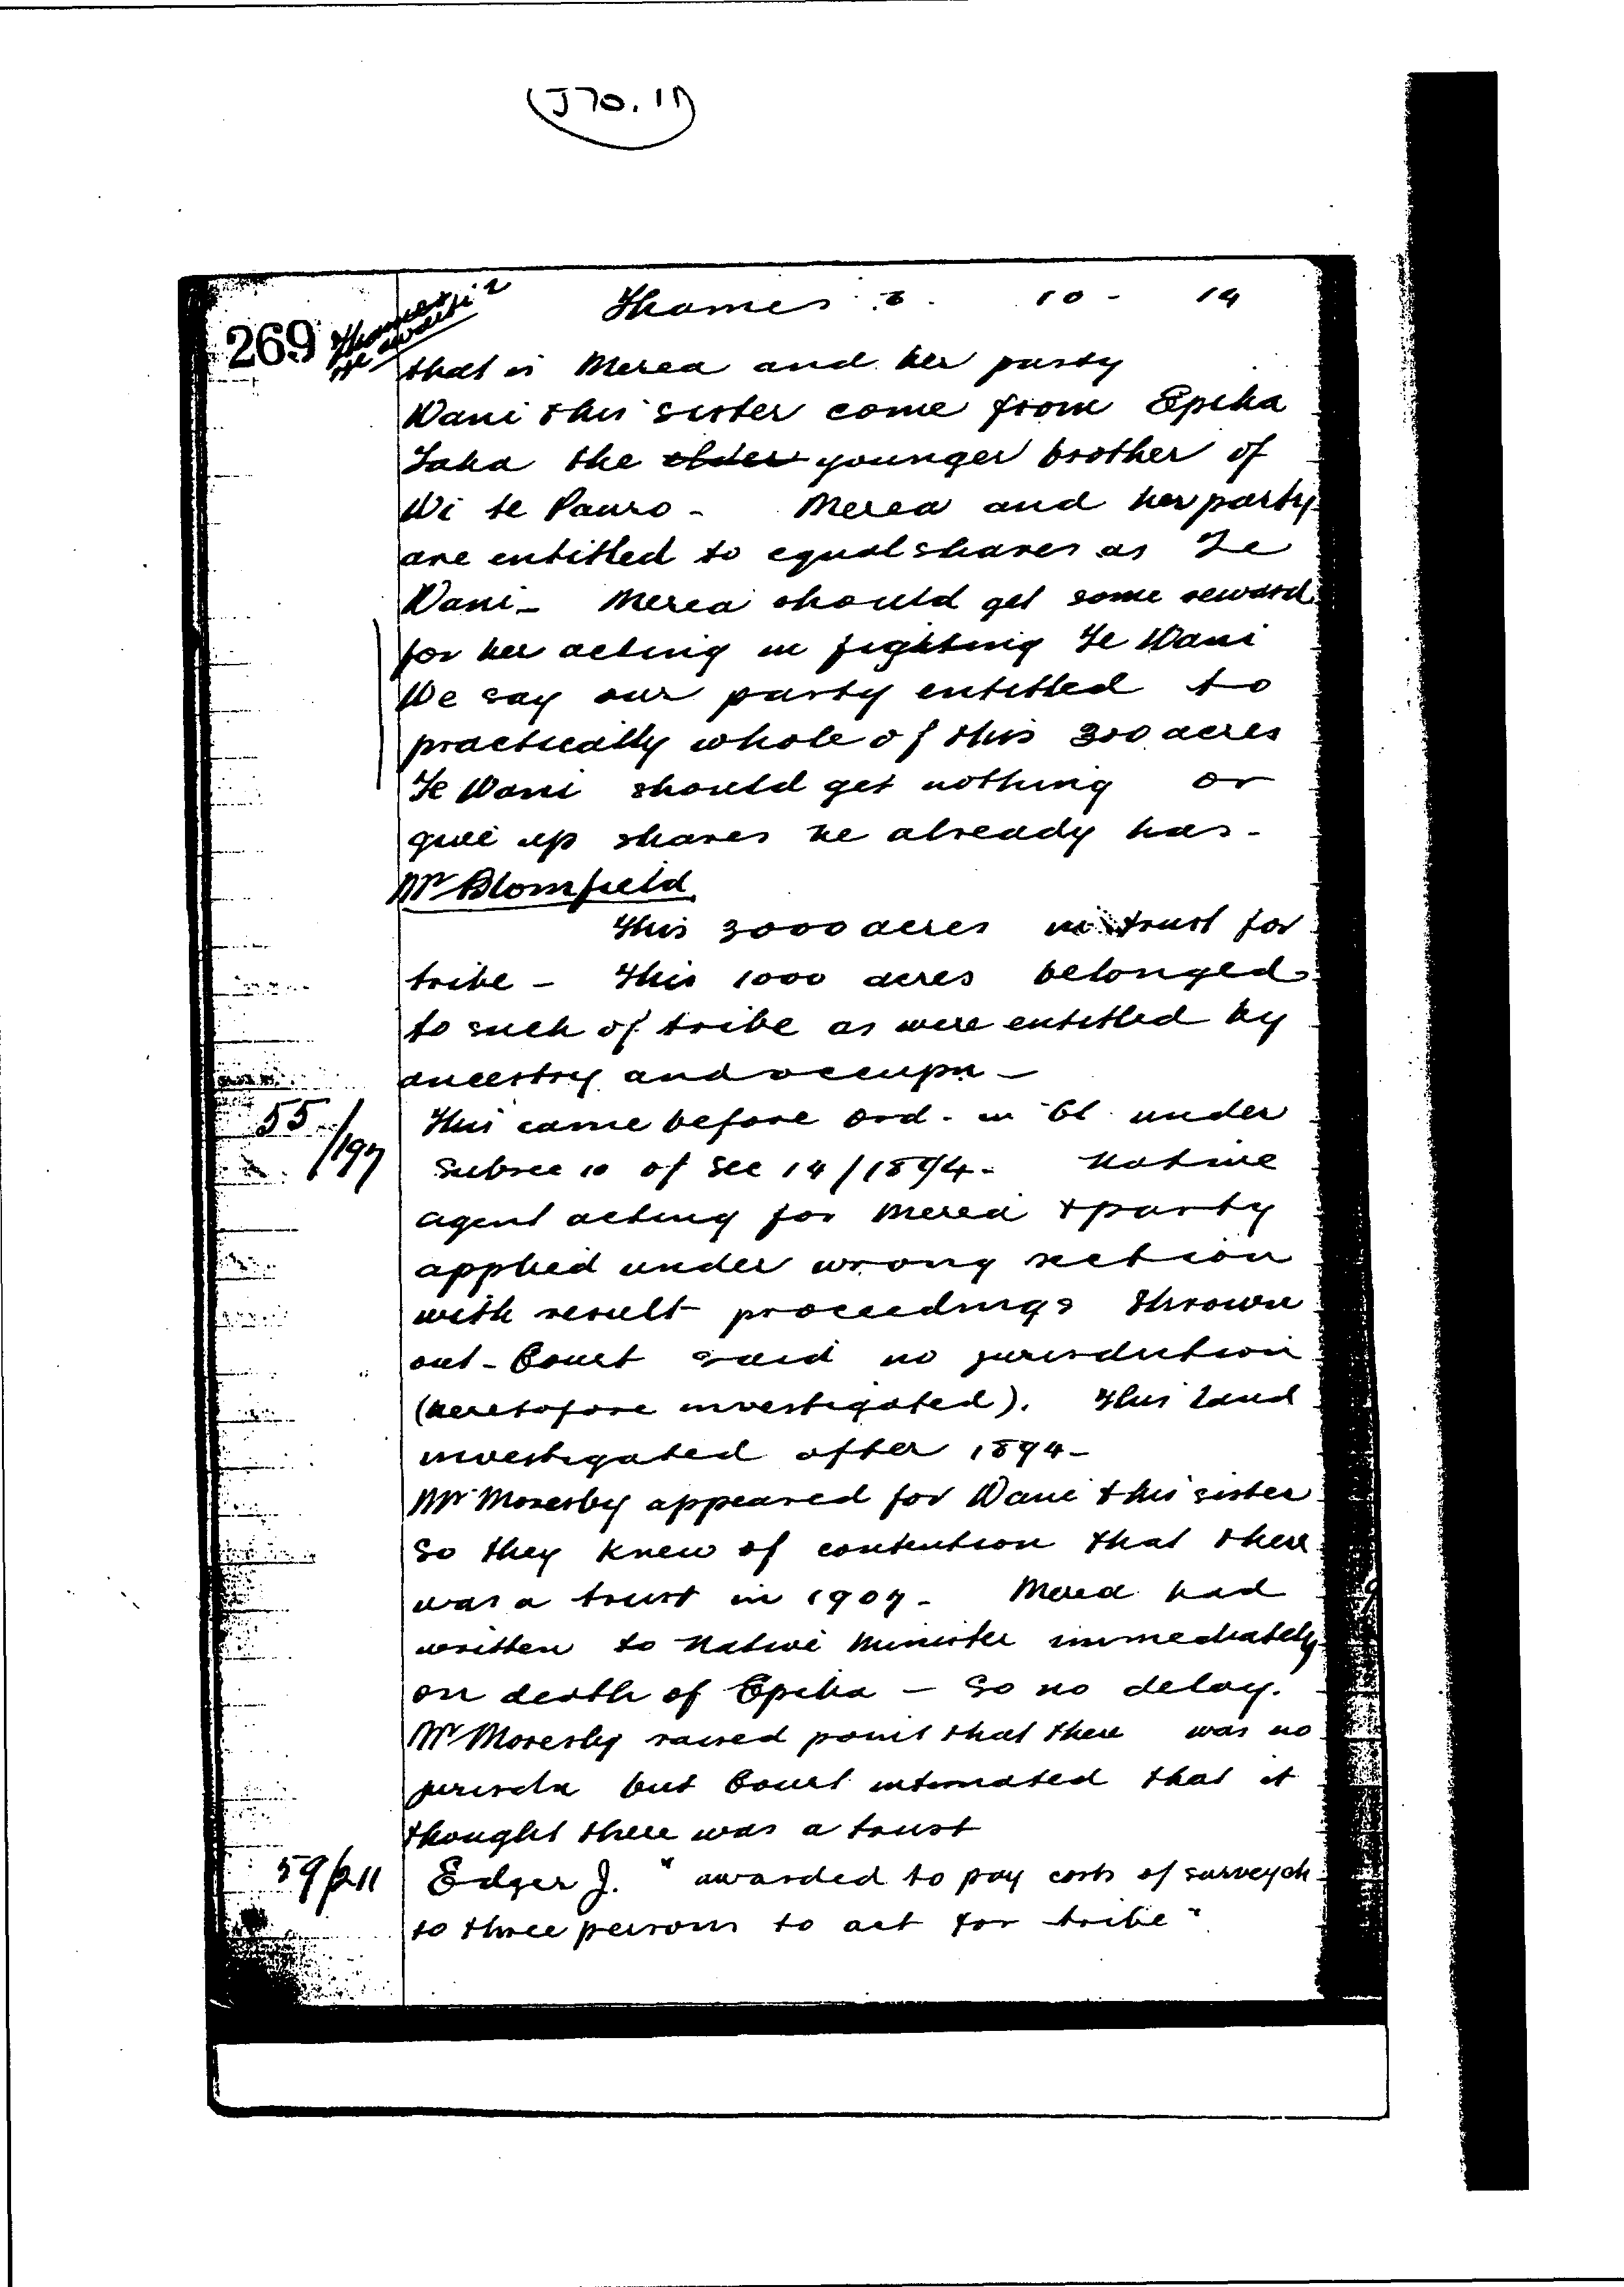 (J70.11)
269
Thames 10 - 14
that is Merea and her party
Wani & his sister come from Epiha
Taha the older younger brother of
Wi te Pauro - Merea and her party
are entitled to equal shares as Te
Wani - Merea should get some reward
for her acting in fighting Te Wani
We say our party entitled to
practically whole of this 300 acres
Te Wani should get nothing or
give up shares he already has -
Mr Blomfield
This 3000 acres in trust for
tribe - This 1000 acres belonged
to such of tribe as were entitled by
ancestry and occupn -
55/197
This came before ord. in Ct under
subsec 10 of Sec 14/1894 - Native
agent acting for Merea & party
applied under wrong section
with result proceedings thrown
out - Court said no jurisdiction
(heretofore investigated). This land
investigated after 1894 -
Mr Moresby appeared for Wani & his sister
so they knew of contention that there
was a trust in 1907 - Merea had
written to Native Minister immediately
on death of Epiha - so no delay.
Mr Moresby raised point that there was no
jurisdn but Court intimated that it
thought there was a trust
59/211
Edger J. "awarded to pay costs of survey &
to three persons to act for tribe"